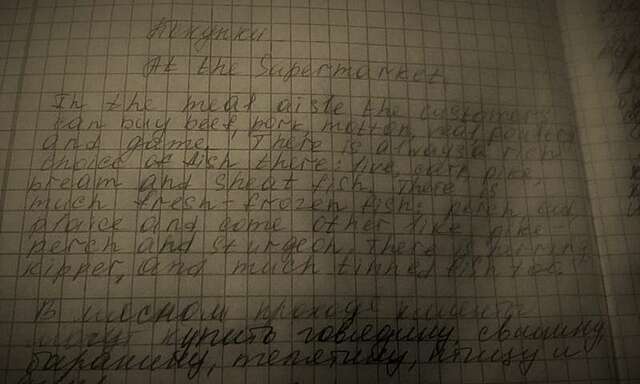 At the Supermarket
In the meat aisle the customers
can buy beef, pork, motton, veal, poultry
and game. There is always a rich
choice of fish there: live carp, pike,
bream and sheat fish. There is
much fresh-frozen fish: perch, cod,
plaice and some other like pike-
perch and sturgeon. There is herring,
kipper, and much tinned fish too.
В мясном проходе клиенты
могут купить говядину, свинину,
баранину, телятину, птицу и